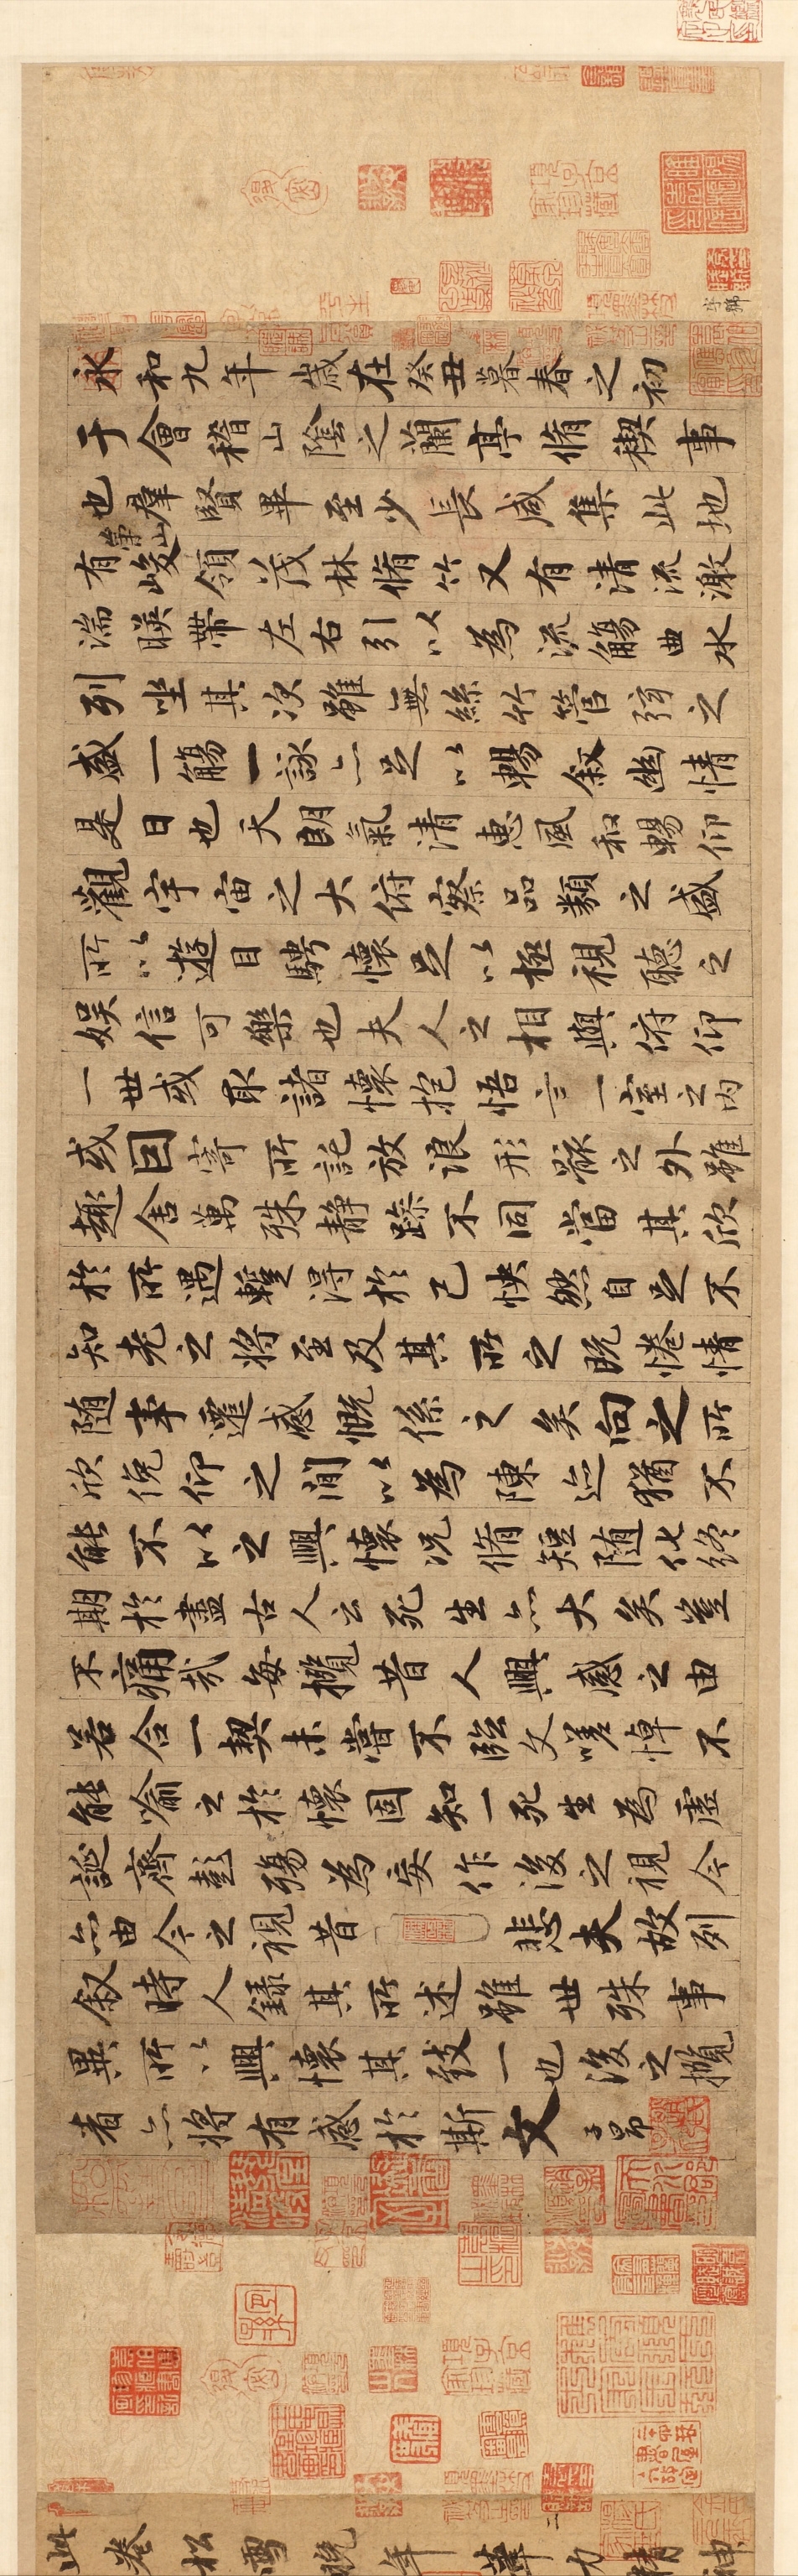 永和九年歲在癸丑暮春之初
于會稽山陰之蘭亭脩稧事
也羣賢畢至少長咸集此地
有崇山峻領茂林脩竹又有清流激
湍暎帶左右引以為流觴曲水
列坐其次雖無絲竹管弦之
盛一觴一詠亦足以暢叙幽情
是日也天朗氣清惠風和暢仰
觀宇宙之大俯察品類之盛
所以遊目騁懷足以極視聽之
娛信可樂也夫人之相與俯仰
一世或取諸懷抱悟言一室之內
或因寄所託放浪形骸之外雖
趣舍萬殊靜躁不同當其欣
於所遇蹔得於己怏然自足不
知老之將至及其所之既惓情
随事遷感慨係之矣向之所
欣俛仰之間以為陳迹猶不
能不以之興懷況脩短随化終
期於盡古人云死生亦大矣豈
不痛哉每攬昔人興感之由
若合一契未嘗不臨文嗟悼不
能喻之於懷固知一死生為虛
誕齊彭殤為妄作後之視今
亦由今之視昔悲夫故列
叙時人錄其所述雖世殊事
異所以興懷其致一也後之攬
者亦將有感於斯文 子昂
此卷松雪晚年筆力精神